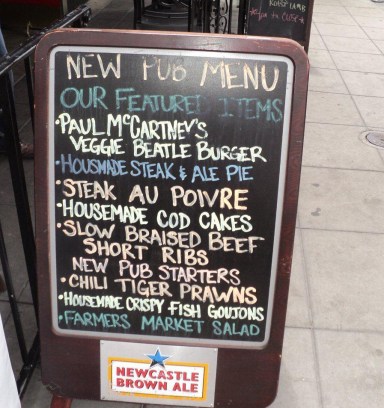 NEW PUB MENU
OUR FEATURED ITEMS
•PAUL McCARTNEY'S
VEGGIE BEATLE BURGER
•HOUSMADE STEAK & ALE PIE
•STEAK AU POIVRE
•HOUSEMADE COD CAKES
•SLOW BRAISED BEEF
SHORT RIBS
NEW PUB STARTERS
•CHILI TIGER PRAWNS
•HOUSEMADE CRISPY FISH GOUJONS
•FARMERS MARKET SALAD
NEWCASTLE
BROWN ALE